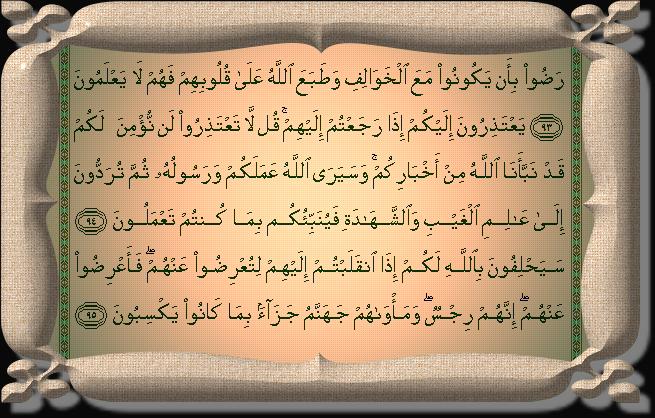 رَضُوا۟ بِأَن يَكُونُوا۟ مَعَ ٱلْخَوَالِفِ وَطَبَعَ ٱللَّهُ عَلَىٰ قُلُوبِهِمْ فَهُمْ لَا يَعْلَمُونَ
٩٣ يَعْتَذِرُونَ إِلَيْكُمْ إِذَا رَجَعْتُمْ إِلَيْهِمْ ۚ قُل لَّا تَعْتَذِرُوا۟ لَن نُّؤْمِنَ لَكُمْ
قَدْ نَبَّأَنَا ٱللَّهُ مِنْ أَخْبَارِكُمْ ۚ وَسَيَرَى ٱللَّهُ عَمَلَكُمْ وَرَسُولُهُۥ ثُمَّ تُرَدُّونَ
إِلَىٰ عَـٰلِمِ ٱلْغَيْبِ وَٱلشَّهَـٰدَةِ فَيُنَبِّئُكُم بِمَا كُنتُمْ تَعْمَلُونَ ٩٤
سَيَحْلِفُونَ بِٱللَّهِ لَكُمْ إِذَا ٱنقَلَبْتُمْ إِلَيْهِمْ لِتُعْرِضُوا۟ عَنْهُمْ ۖ فَأَعْرِضُوا۟
عَنْهُمْ ۖ إِنَّهُمْ رِجْسٌ ۖ وَمَأْوَىٰهُمْ جَهَنَّمُ جَزَآءًۢ بِمَا كَانُوا۟ يَكْسِبُونَ ٩٥